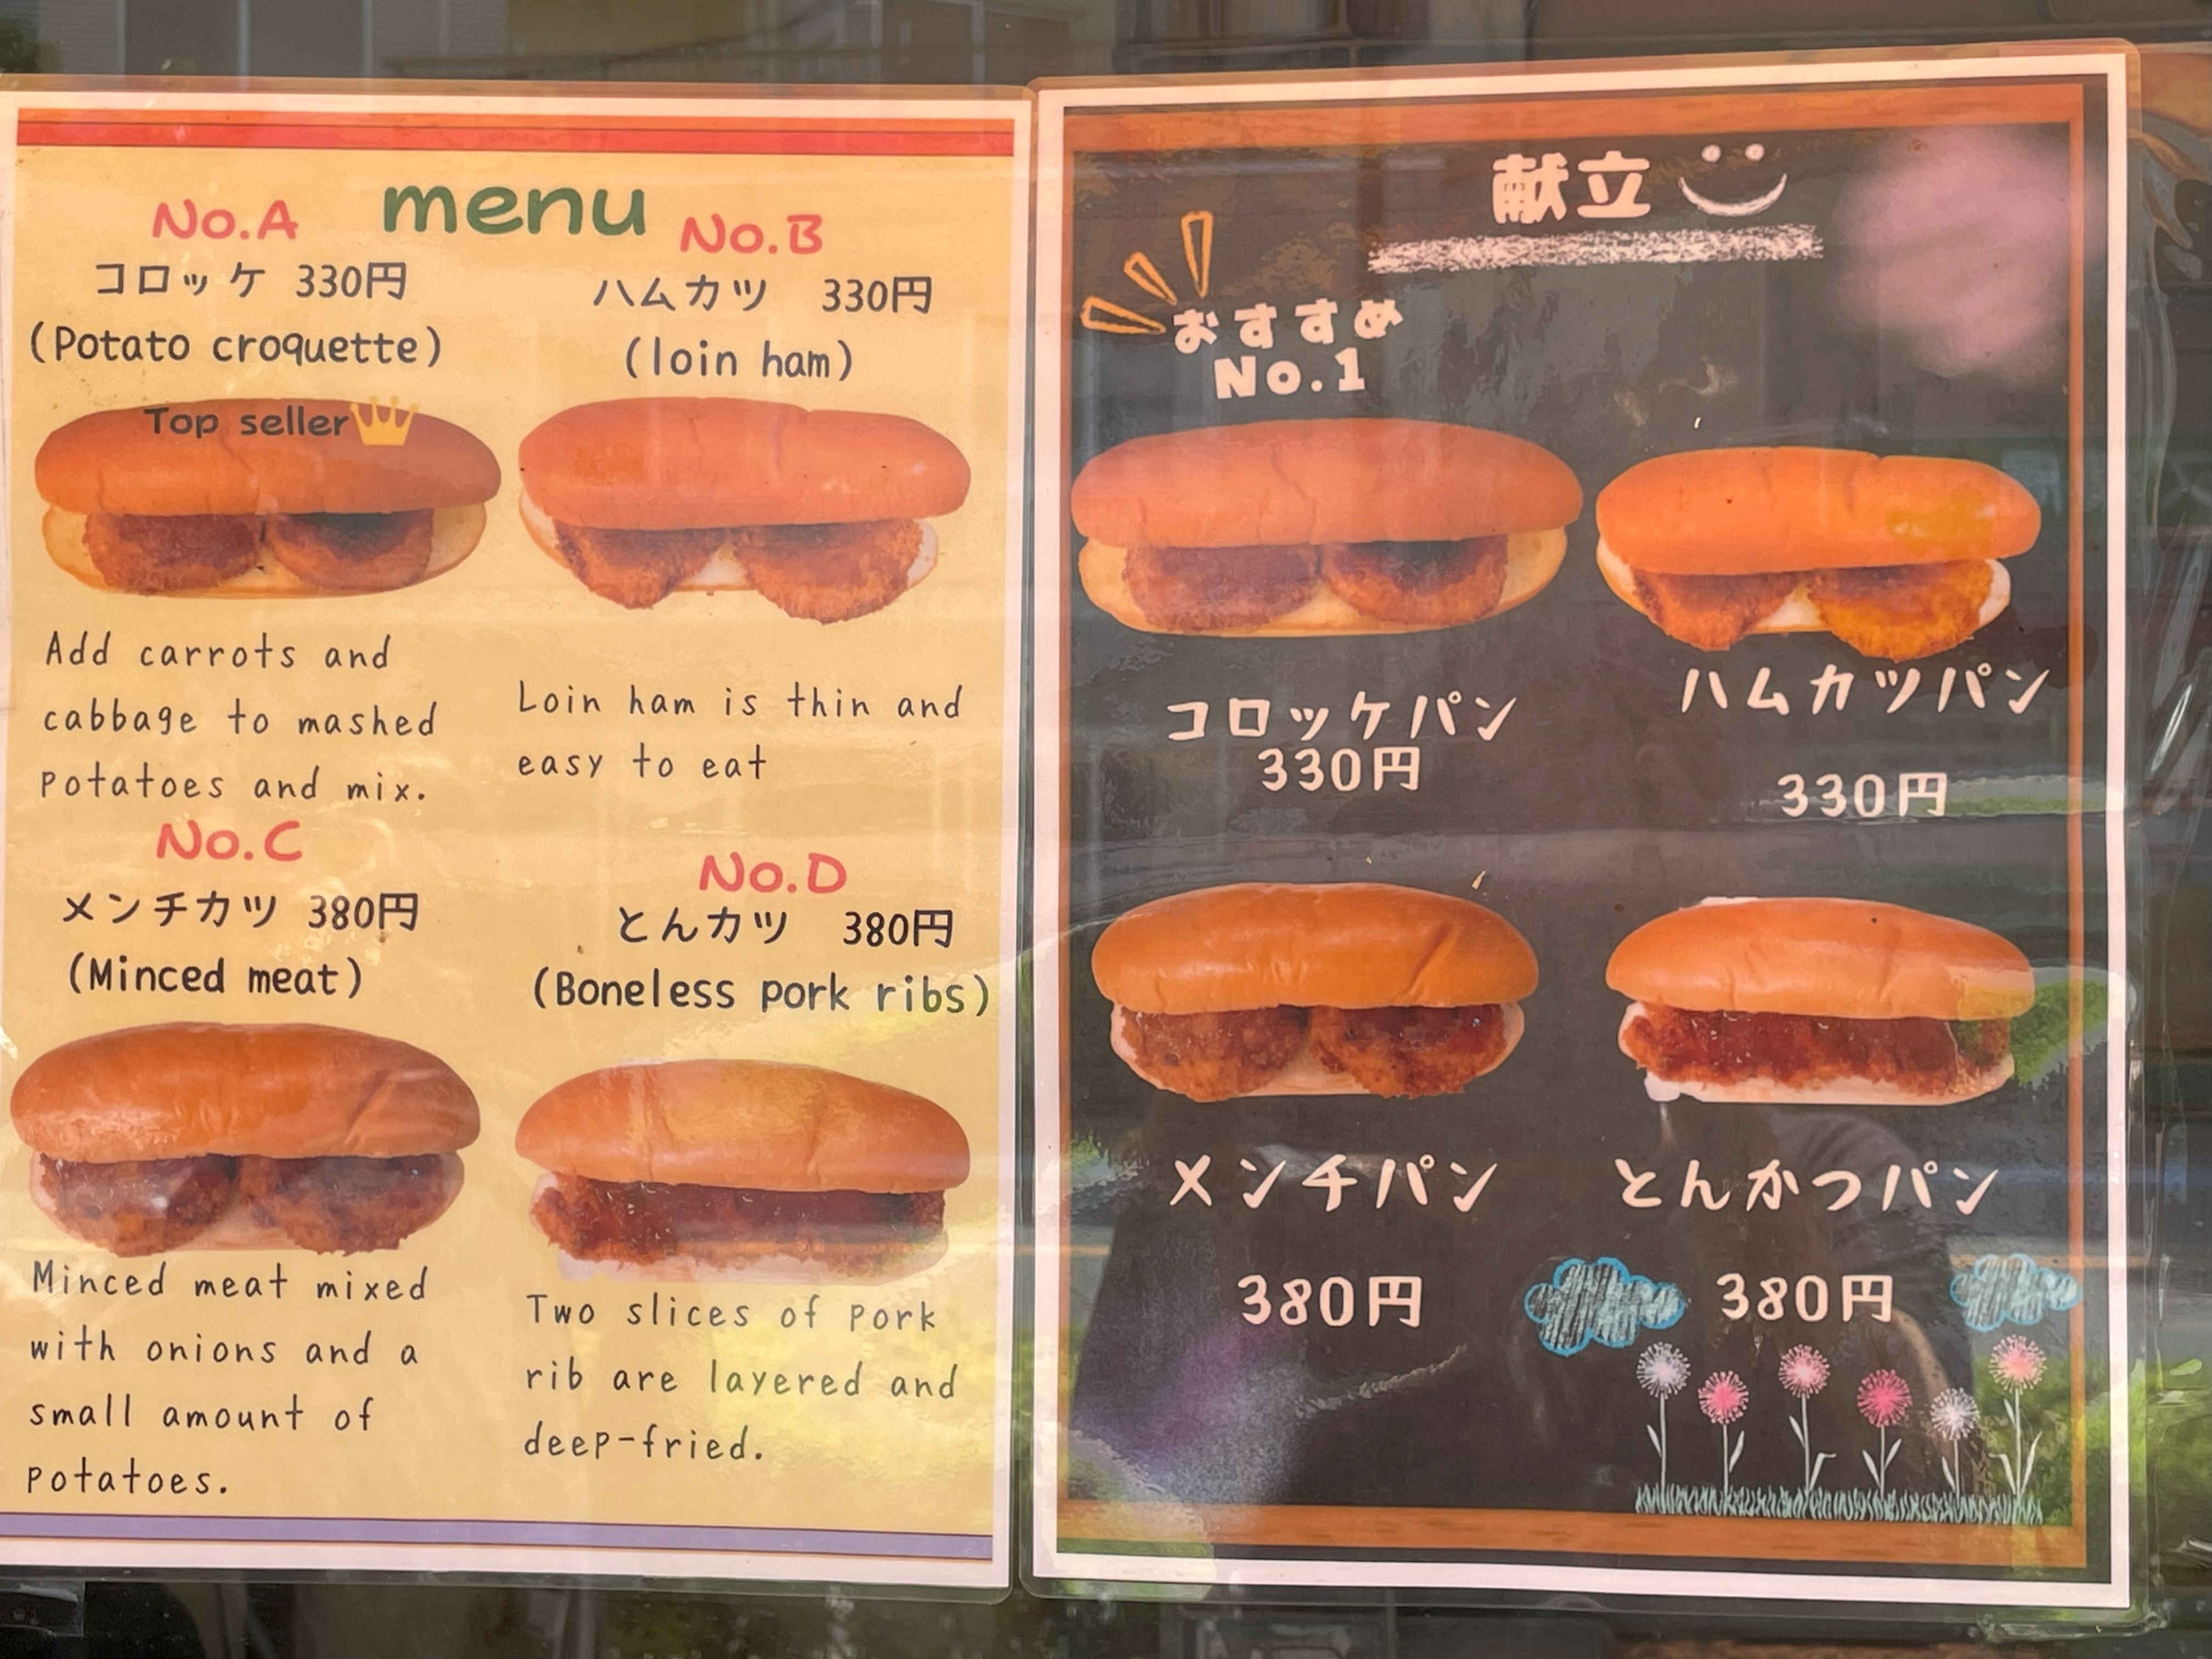 menu
No.A
コロッケ 330円
(Potato croquette)
Top seller
Add carrots and
cabbage to mashed
potatoes and mix.
No.B
ハムカツ 330円
(loin ham)
Loin ham is thin and
easy to eat
No.C
メンチカツ 380円
(Minced meat)
Minced meat mixed
with onions and a
small amount of
potatoes.
No.D
とんカツ 380円
(Boneless pork ribs)
Two slices of pork
rib are layered and
deep-fried.
献立
おすすめ
No.1
コロッケパン
330円
ハムカツパン
330円
メンチパン
380円
とんかつパン
380円